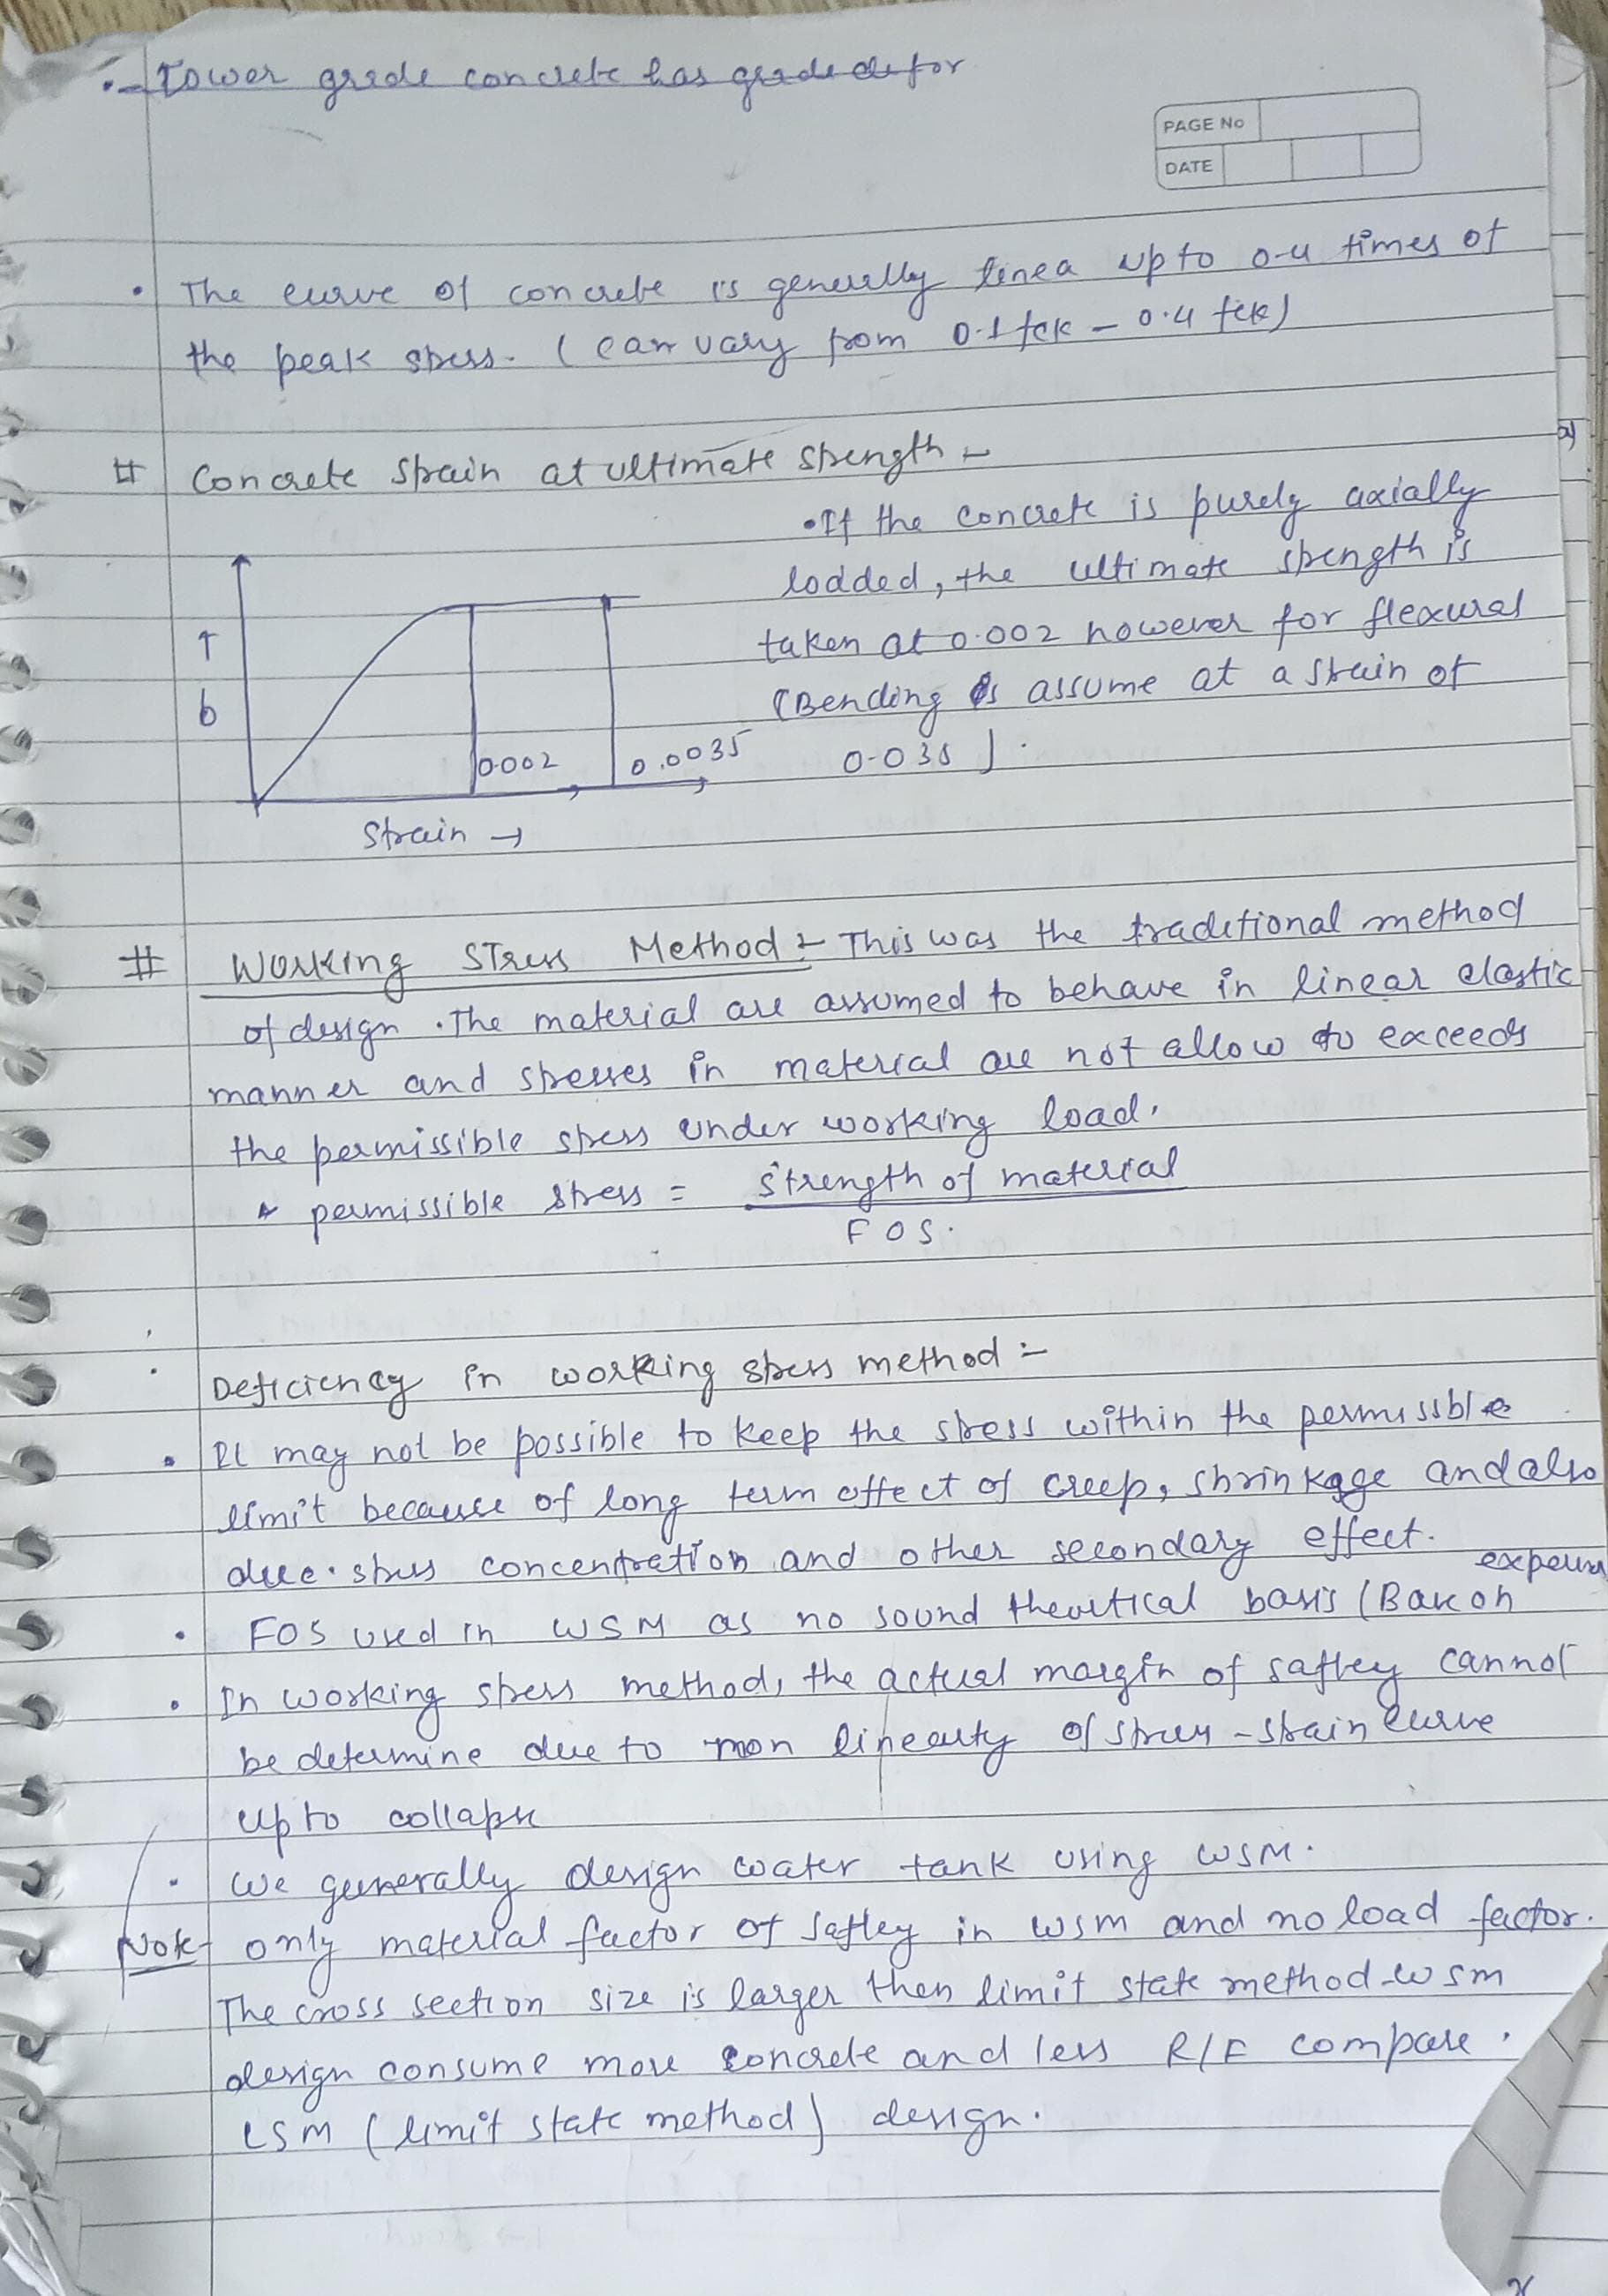 Lower grade concrete has grade defor
PAGE No
DATE
• The curve of concrete is generally linea upto 0.4 times of
the peak stress. (can vary from 0.1 fck - 0.4 fck)
# Concrete strain at ultimate strength :-
• If the concrete is purely axially
lodded, the ultimate strength is
taken at 0.002 however for flexural
(Bending is assume at a strain of
0.035).
↑
σ
0.002
0.0035
Strain →
# Working Stress Method :- This was the traditional method
of design. The material are assumed to behave in linear elastic
manner and stresses in material are not allow to exceeds
the permissible stress under working load.
* permissible stress = strength of material
FOS.
Deficiency in working stress method :-
• It may not be possible to keep the stress within the permissble
limit because of long term effect of creep, shrinkage and also
due. stress concentration and other secondary effect.
• FOS used in WSM as no sound theortical basis (Base on
• In working stress method, the actual margin of saftey cannot
be determine due to non linearty of stress - strain curve
upto collapse
• We generally design water tank using WSM.
Note- only material factor of saftey in WSM and no load factor.
The cross section size is larger then limit state method - WSM
design consume more concrete and less R/F compare.
LSM (limit state method) design.